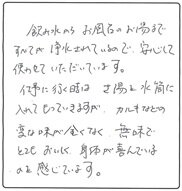 飲み水から お風呂のお湯まで
すべてが浄水されているので、安心して
使わせていただいています。
仕事に行く時は さ湯を水筒に
入れてもっていきますが、カルキなどの
変な味が全くなく、無味で
とても おいしく、身体が喜んでいるな
のを感じています。